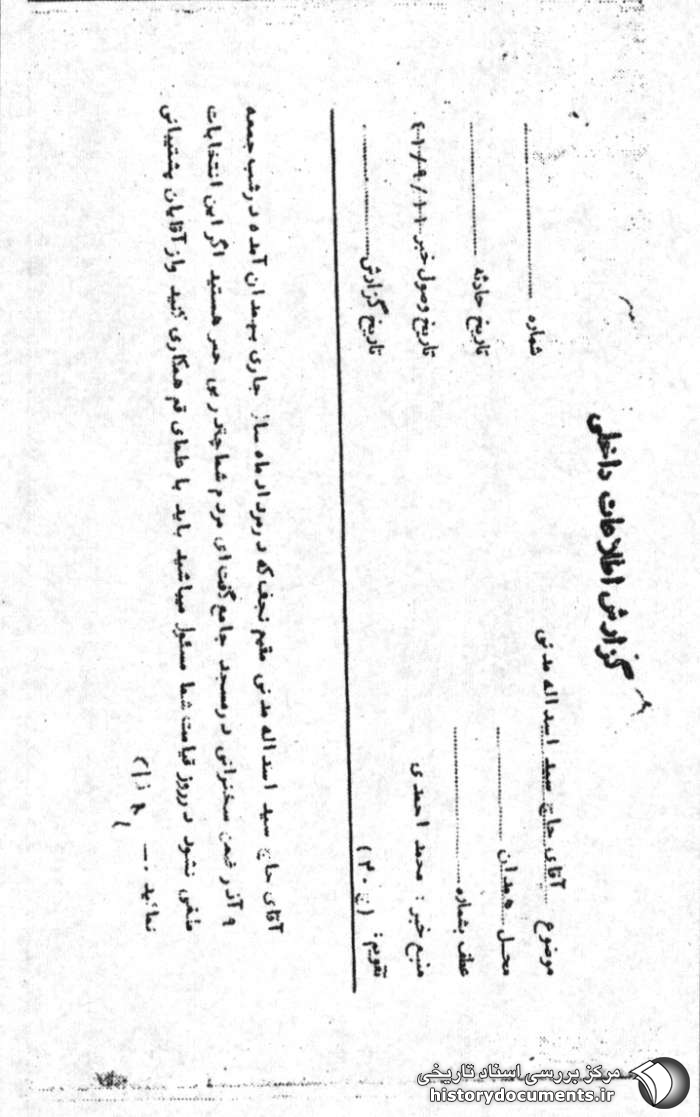 گزارش اطلاعات داخلی
موضوع آقای حاج سید اسداله مدنی
شماره
محل همدان
تاریخ حادثه
عطف بشماره
تاریخ وصول خبر ۴۱/۹/۱۱
منبع خبر : محمد احمدی
تاریخ گزارش
تقویم : (ج-۲)
آقای حاج سید اسداله مدنی مقیم نجف که در مرداد ماه سال جاری بهمدان آمده در شب جمعه
۹ آذر ضمن سخنرانی در مسجد جامع گفت ای مردم شما چقدر بی حس هستید اگر این انتخابات
ملغی نشود در روز قیامت شما مسئول میباشید باید با علمای قم همکاری کنید و از آقایان پشتیبانی
نمائید .
مرکز بررسی اسناد تاریخی
historydocuments.ir